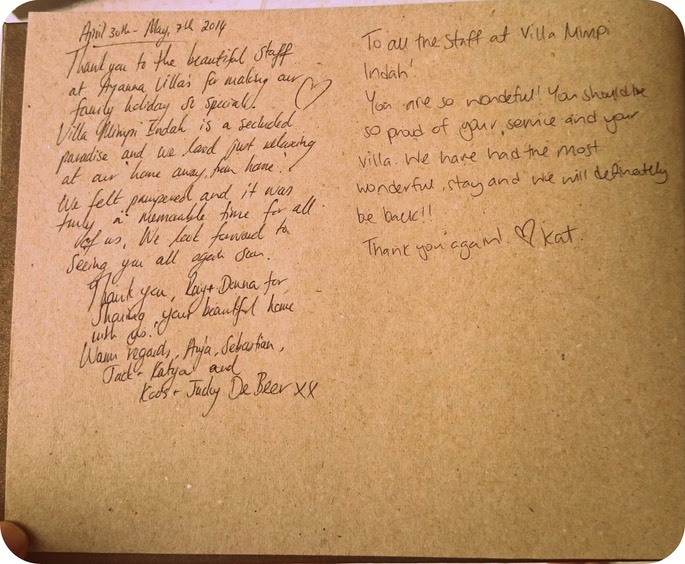 April 30th - May, 7th 2014
Thank you to the beautiful staff
at Ayanna Villa's for making our
family holiday so special!
Villa Mimpi Indah is a secluded
paradise and we loved just relaxing
at our home away from home!
We felt pampered and it was
truly a memorable time for all
of us. We look forward to
seeing you all again soon.
Thank you, Ray + Donna for
sharing your beautiful home
with us!
Warm regards, Anja, Sebastian,
Jack + Katya and
Koos + Judy De Beer xx
To all the staff at Villa Mimpi
Indah!
You are so wondeful! You should be
so proud of your service and your
villa. We have had the most
wonderful stay and we will definately
be back!!
Thank you again! ♡ Kat.